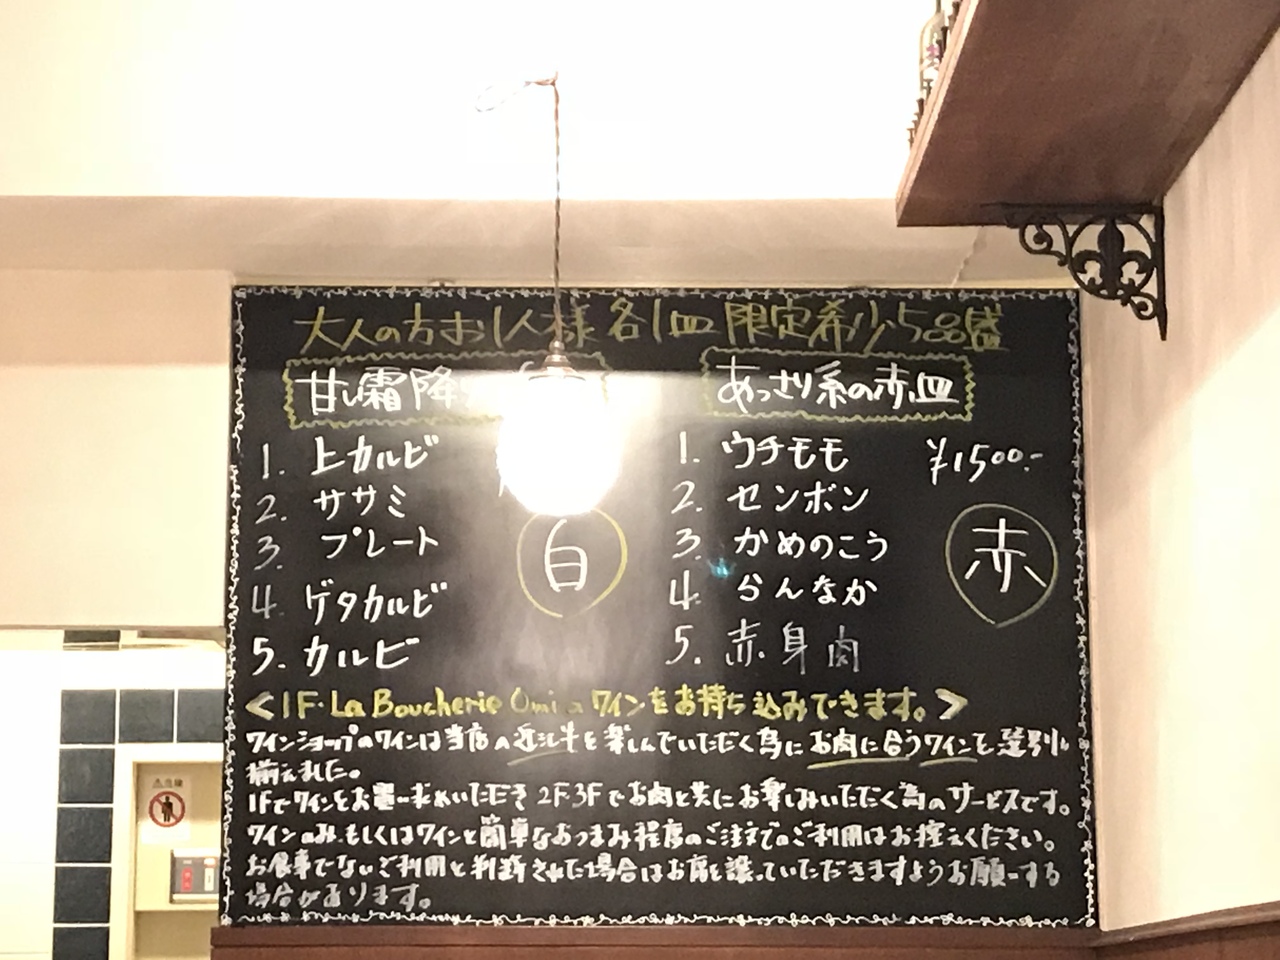 大人の方お1人様 各1皿 限定希少5品盛
甘い霜降
1. 上カルビ
2. ササミ
3. プレート
4. ゲタカルビ
5. カルビ
白
あっさり系の赤皿
1. ウチモモ ¥1500.-
2. センボン
3. かめのこう
4. らんなか
5. 赤身肉
赤
<1F・La Boucherie Omi ワインをお持ち込みできます。>
ワインショップのワインは当店の近江牛を楽しんでいただく為にお肉に合うワインを選別し
揃えました。
1Fでワインをお買い求めいただき 2F3Fでお肉と共にお楽しみいただく為のサービスです。
ワインのみ、もしくはワインと簡単なおつまみ程度のご注文でのご利用はお控えください。
お食事でないご利用と判断された場合はお席を譲っていただきますようお願いする
場合があります。